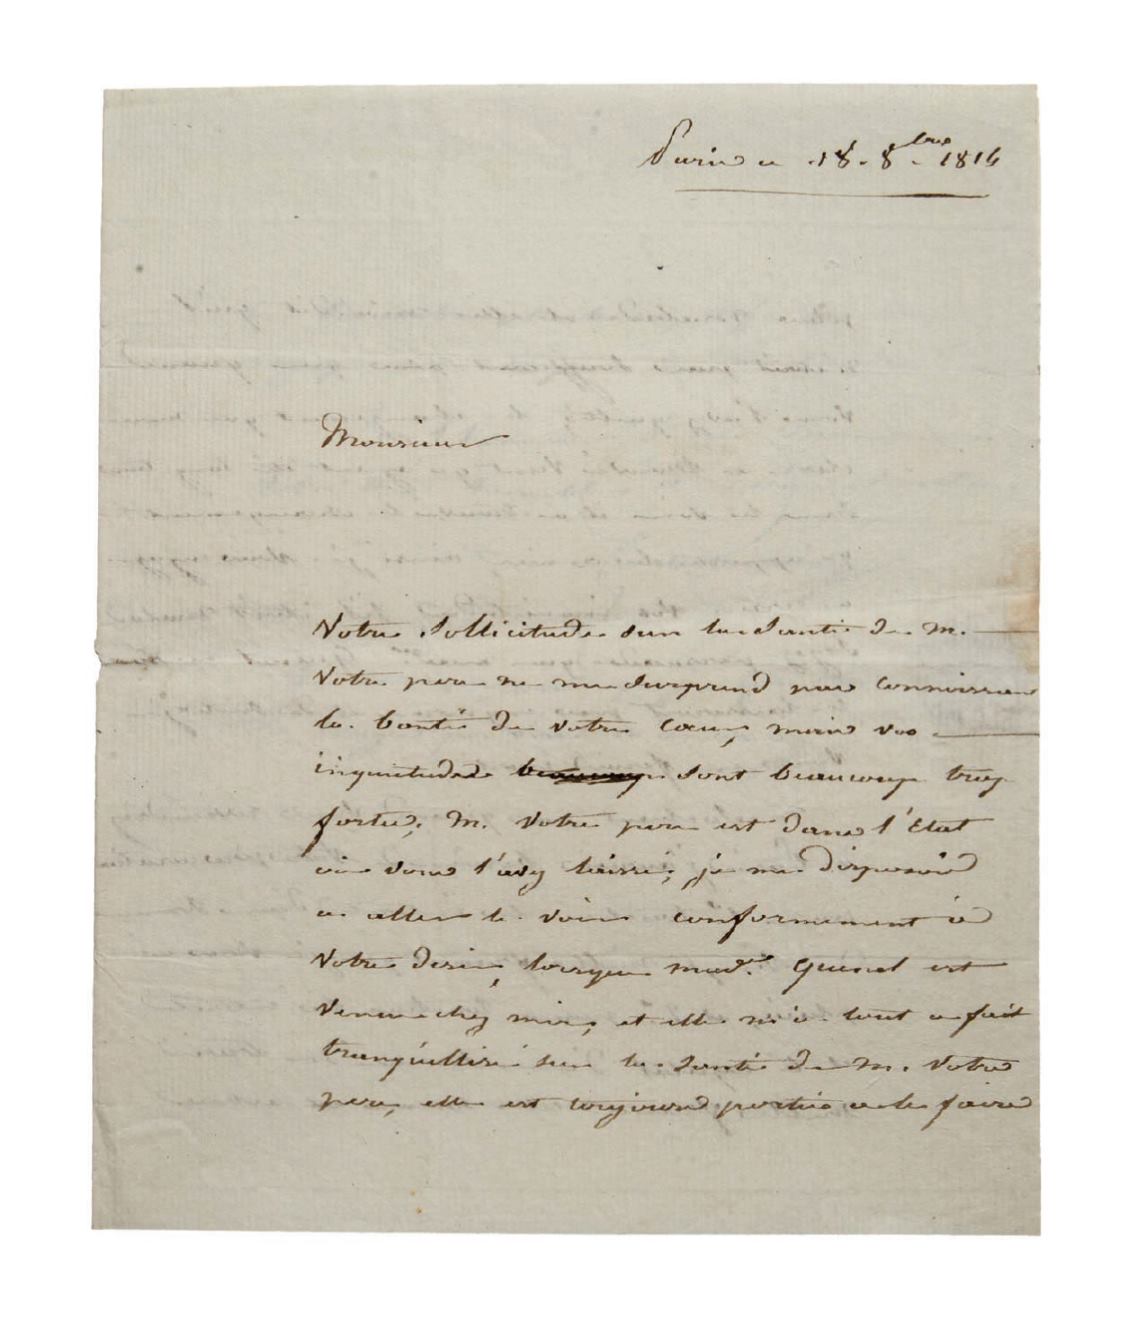 Paris ce 18. 8bre 1814
Monsieur
Votre sollicitude sur la santé de M.
Votre pere ne me surprend pas connoissant
la bonté de votre cœur, mais vos
inquietudes beaucoup sont beaucoup trop
fortes, M. Votre pere est dans l'Etat
où vous l'avez laissé; je me disposois
a aller le voir conformement à
votre desir, lorsque mad.e Quinel est
venue chez moi, et elle m'a tout a fait
tranquillisé sur la santé de M. Votre
pere, elle est toujours portée a le faire